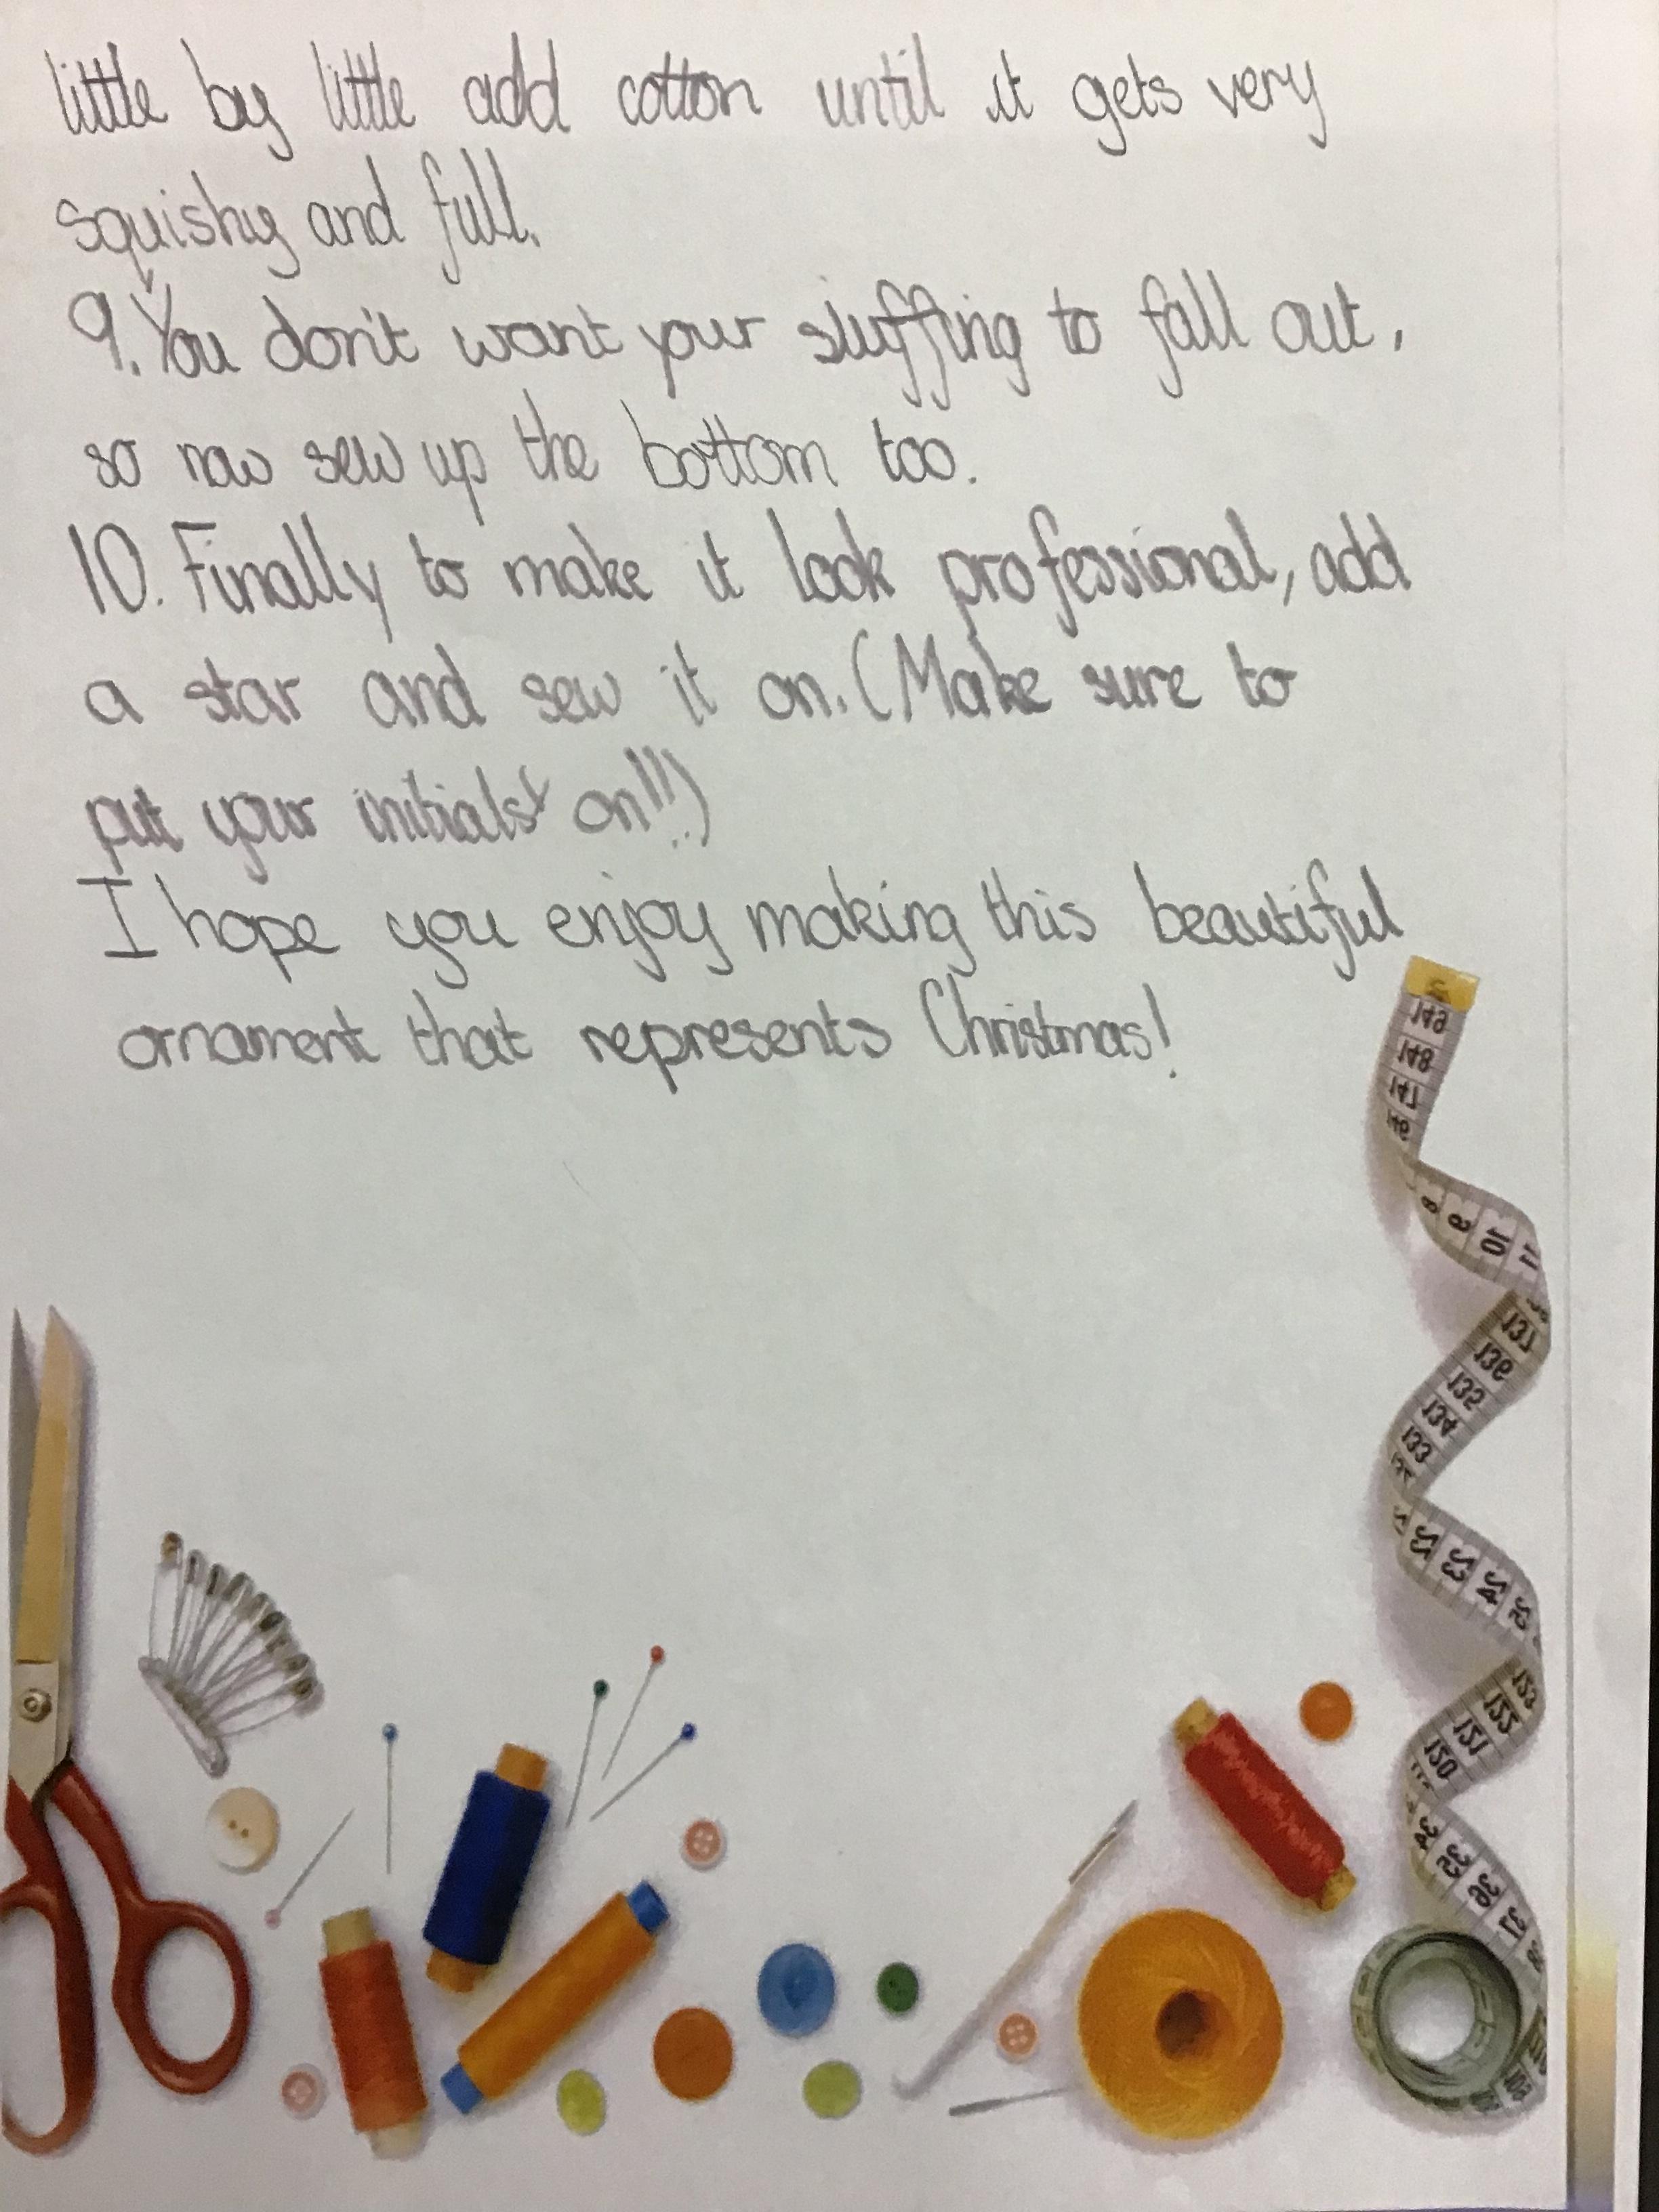 little by little add cotton until it gets very
squishy and full.
9. You don't want your stuffing to fall out,
so now sew up the bottom too.
10. Finally to make it look professional, add
a star and sew it on. (Make sure to
put your initials on!!)
I hope you enjoy making this beautiful
ornament that represents Christmas!
149
148
147
146
8
9
10
11
137
136
135
134
133
22
23
24
25
123
122
121
120
34
35
36
37